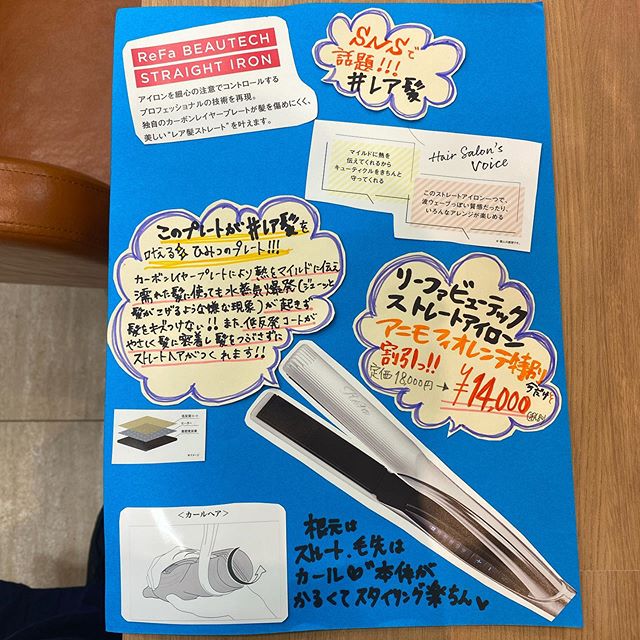 ReFa BEAUTECH
STRAIGHT IRON
アイロンを細心の注意でコントロールする
プロフェッショナルの技術を再現。
独自のカーボンレイヤープレートが髪を傷めにくく、
美しい“レア髪ストレート”を叶えます。
SNSで
話題!!!
#レア髪
マイルドに熱を
伝えてくれるから
キューティクルをきちんと
守ってくれる
Hair Salon's
Voice
このストレートアイロン一つで、
波ウェーブっぽい質感だったり、
いろんなアレンジが楽しめる
このプレートが#レア髪を
叶える ひみつのプレート!!!
カーボンレイヤープレートにより熱をマイルドに伝え
濡れた髪に使っても水蒸気爆発(ジューッと
髪がこげるような様な現象)が起きず
髪をキズつけない!! また、低反発コートが
やさしく髪に密着し髪をつぶさずに
ストレートヘアがつくれます!!
リーファビューテック
ストレートアイロン
アニモフィオレンテ特別
割引っ!! 今だけ
定価18,000円→¥14,000
ヒーター
<カールヘア>
根元は
ストレート、毛先は
カール♡本体が
かるくてスタイリング楽ちん♥